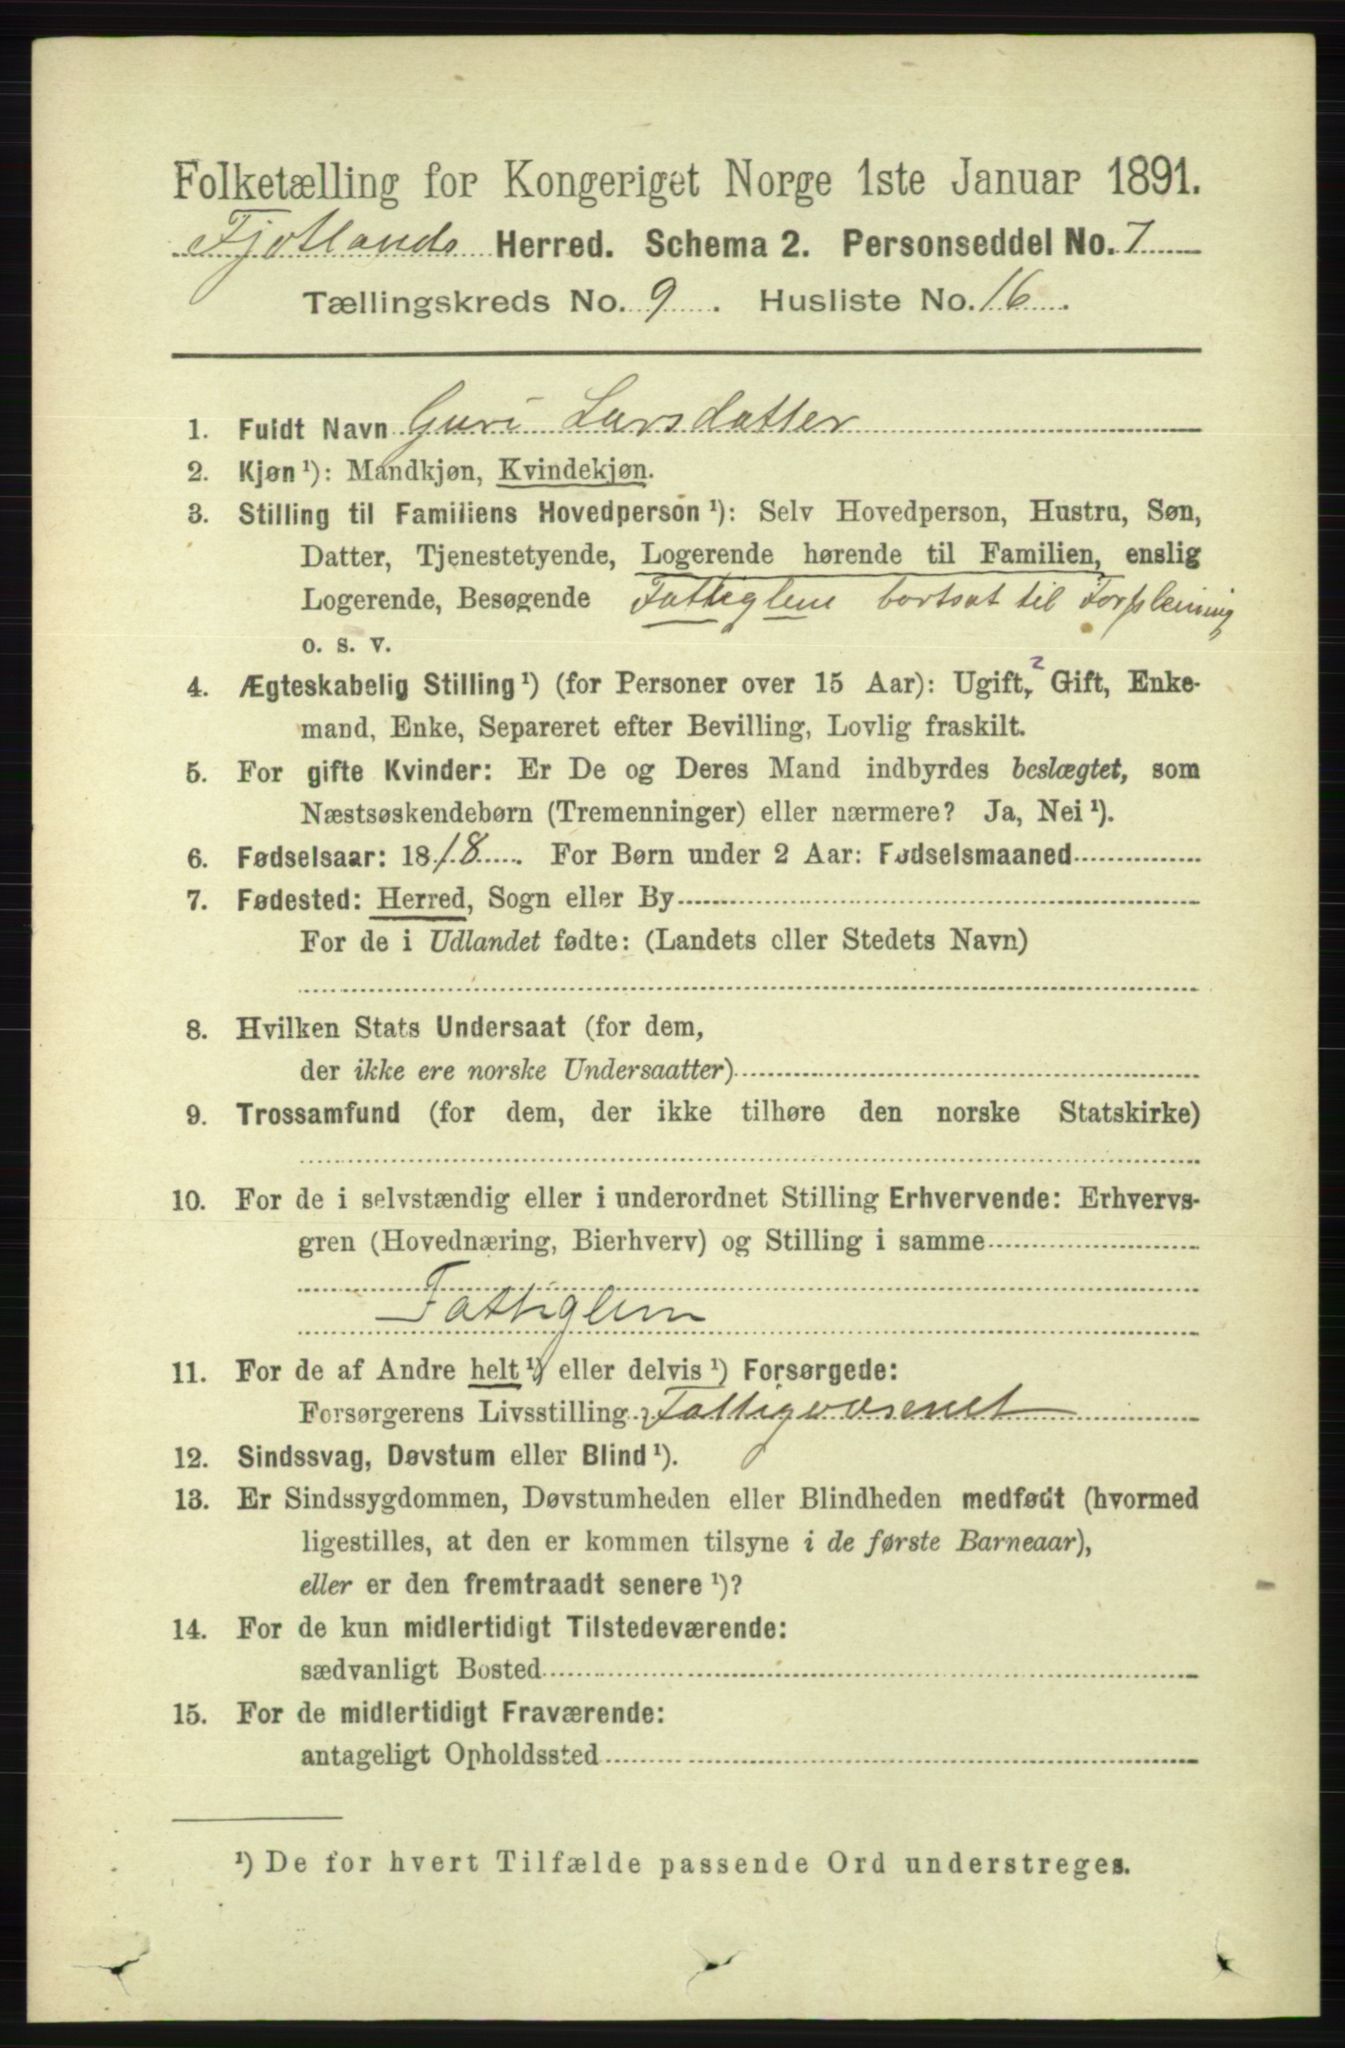 Folketælling for Kongeriget Norge 1ste Januar 1891.
Fjotlands Herred. Schema 2. Personseddel No. 7
Tællingskreds No. 9. Husliste No. 16.
1. Fuldt Navn Guri Larsdatter
2. Kjøn¹): Mandkjøn, Kvindekjøn.
3. Stilling til Familiens Hovedperson¹): Selv Hovedperson, Hustru, Søn,
Datter, Tjenestetyende, Logerende hørende til Familien, enslig
Logerende, Besøgende Fattiglem bortsat til Forpleining
o. s. v.
4. Ægteskabelig Stilling¹) (for Personer over 15 Aar): Ugift, Gift, Enke-
mand, Enke, Separeret efter Bevilling, Lovlig fraskilt.
5. For gifte Kvinder: Er De og Deres Mand indbyrdes beslægtet, som
Næstsøskendebørn (Tremenninger) eller nærmere? Ja, Nei¹).
6. Fødselsaar: 1818. For Børn under 2 Aar: Fødselsmaaned
7. Fødested: Herred, Sogn eller By
For de i Udlandet fødte: (Landets eller Stedets Navn)
8. Hvilken Stats Undersaat (for dem,
der ikke ere norske Undersaatter)
9. Trossamfund (for dem, der ikke tilhøre den norske Statskirke)
10. For de i selvstændig eller i underordnet Stilling Erhvervende: Erhvervs-
gren (Hovednæring, Bierhverv) og Stilling i samme
Fattiglem
11. For de af Andre helt¹) eller delvis¹) Forsørgede:
Forsørgerens Livsstilling Fattigvæsenet
12. Sindssvag, Døvstum eller Blind¹).
13. Er Sindssygdommen, Døvstumheden eller Blindheden medfødt (hvormed
ligestilles, at den er kommen tilsyne i de første Barneaar),
eller er den fremtraadt senere¹)?
14. For de kun midlertidigt Tilstedeværende:
sædvanligt Bosted
15. For de midlertidigt Fraværende:
antageligt Opholdssted
¹) De for hvert Tilfælde passende Ord understreges.